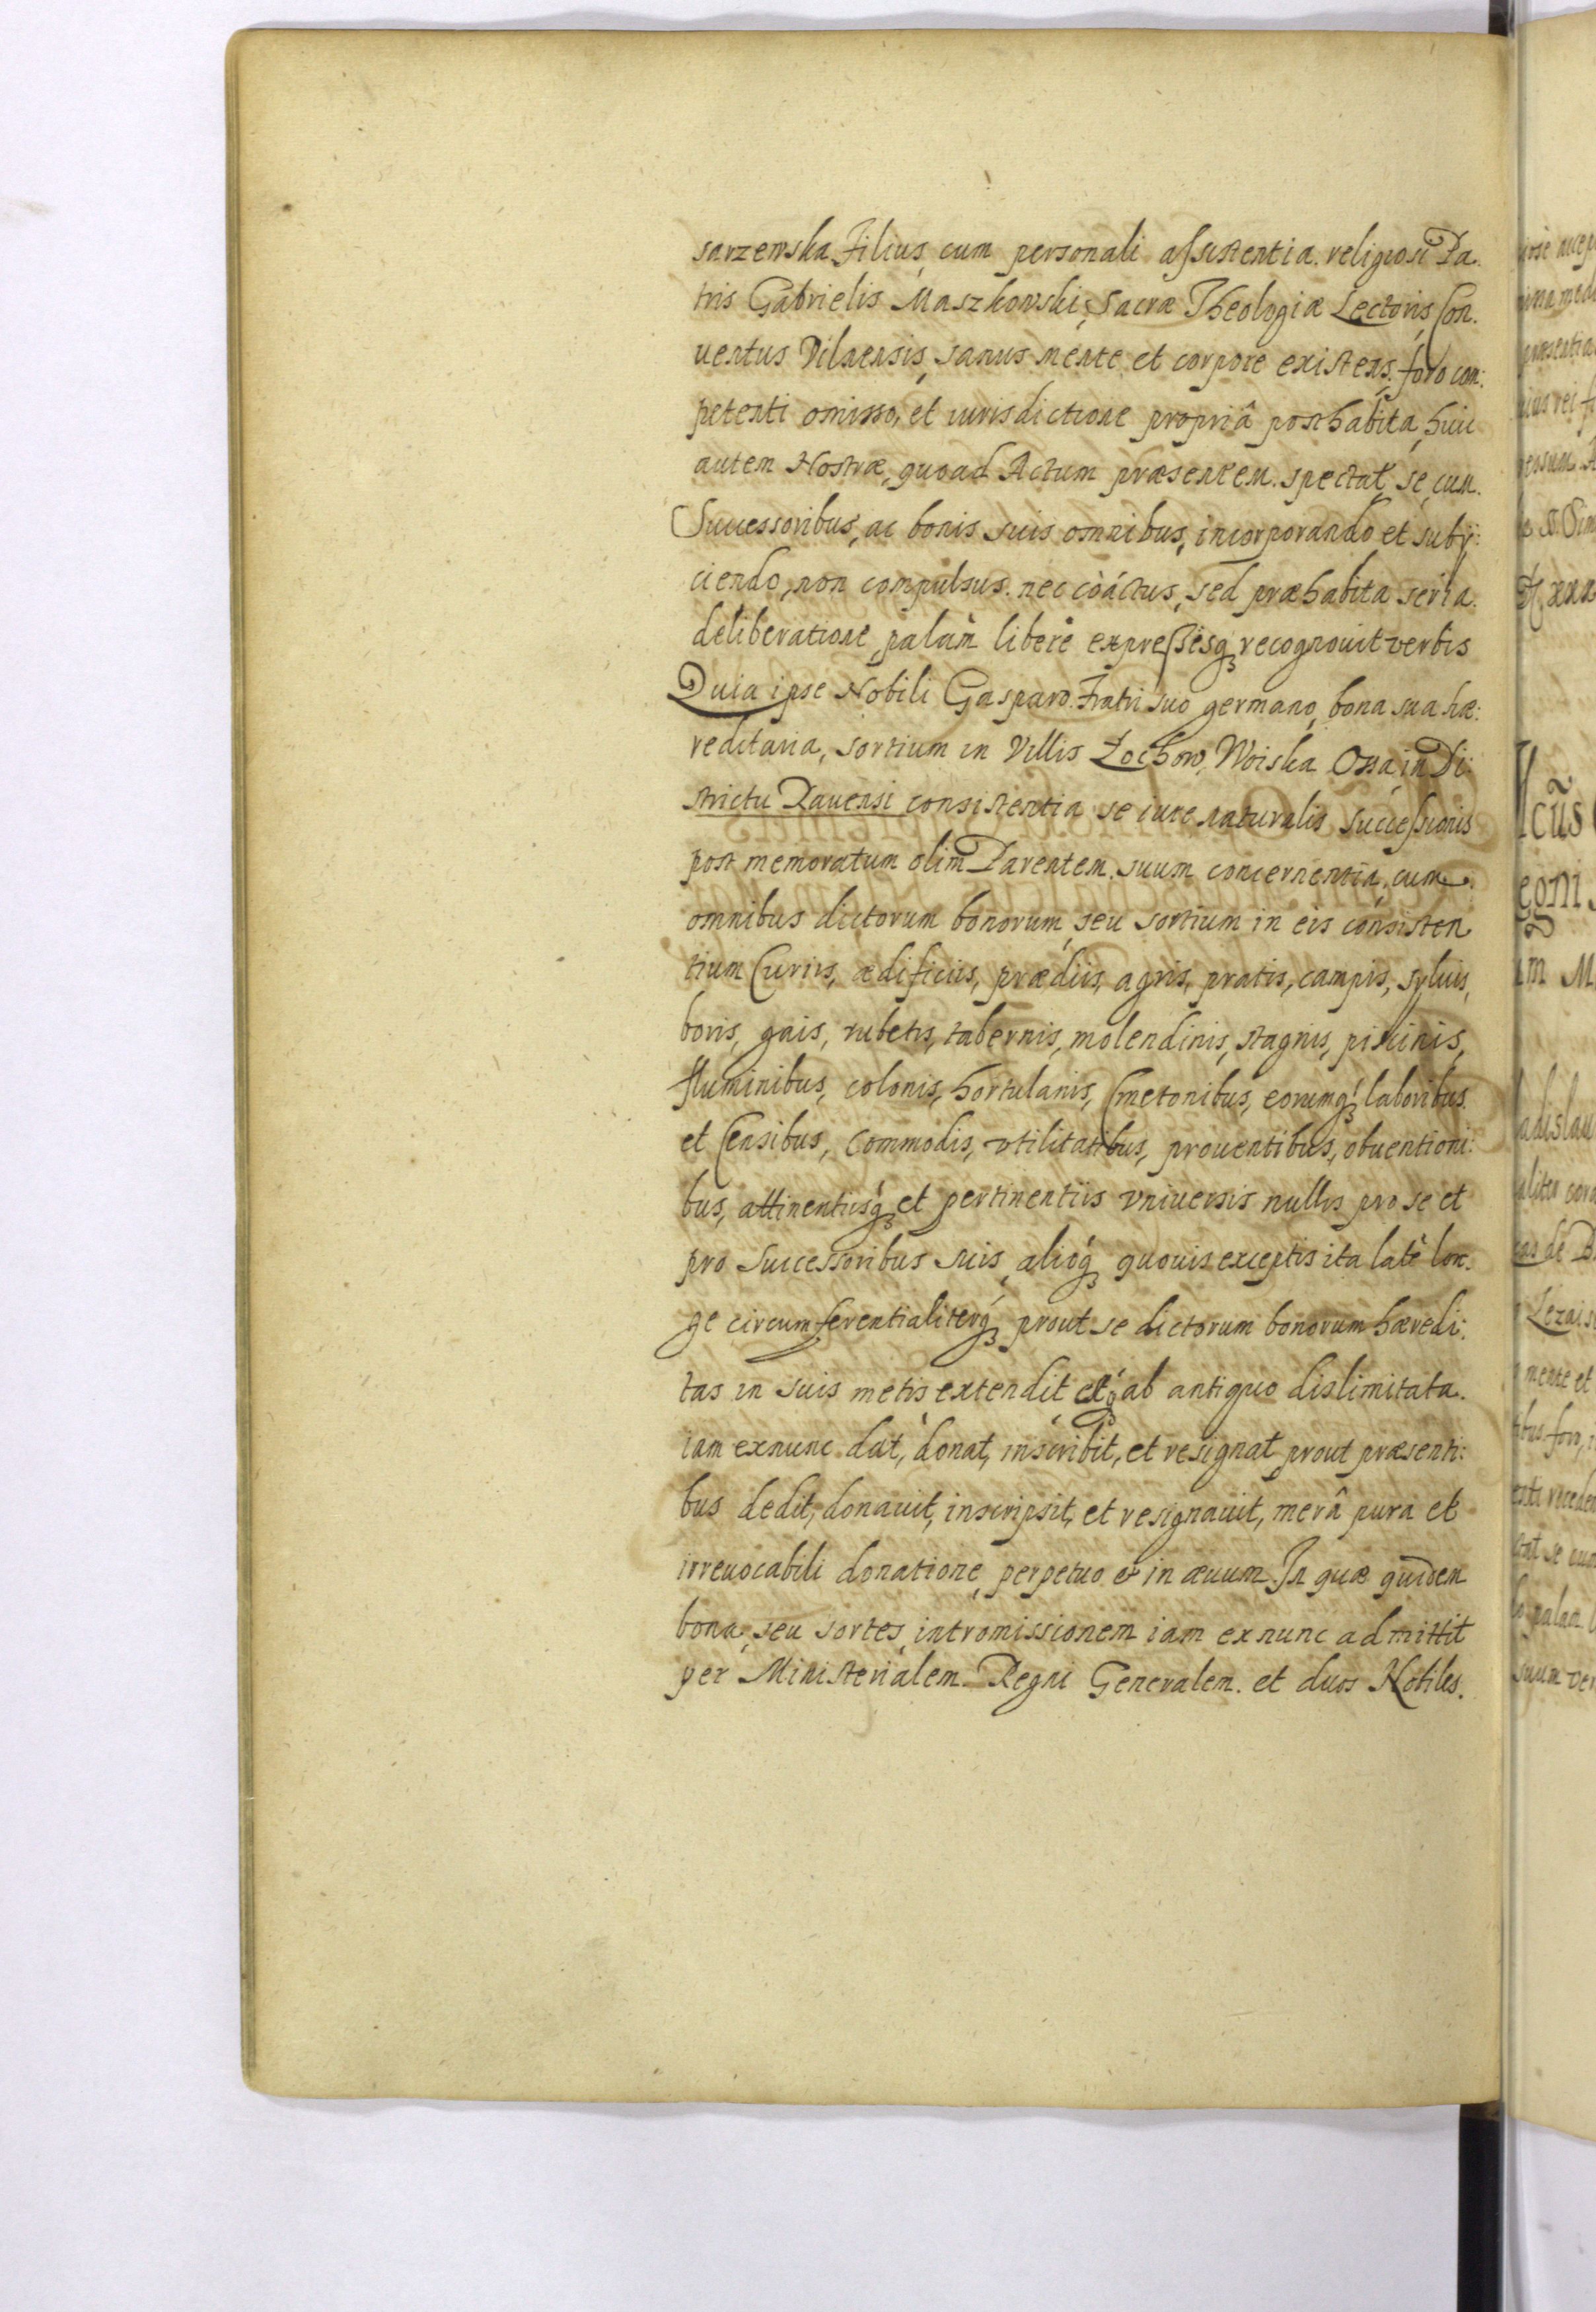 sarzewska Filius, cum personali assistentia religiosi Pa
tris Gabrielis Maszkowski, Sacræ Theologiæ Lectoris Con
uentus Vilnensis, sanus mente et corpore existens, foro com
petenti omisso, et iurisdictione propriâ posthabita, huic
autem Nostræ, quoad Actum præsentem spectat, se, cum
Successoribus, ac bonis suis omnibus, incorporando et subij:
ciendo, non compulsus nec còáctus, sed præhabita seria
deliberatione, palàm liberè expressisq recognouit verbis
Quia ipse Nobili Gasparo Fratri suo germano, bona sua hæ:
reditaria, sortium in Villis Zochow, Woiska Ossa, in Di:
strictu Rauensi consistentia se iure naturalis successionis
post memoratum olim Parentem suum concernentia, cum
omnibus dictorum bonorum, seu sortium in eis consisten
tium Curiis, ædificiis, prædiis, agris, pratis, campis, syluis,
boris, gais, rubetis, tabernis, molendinis, stagnis, piscinis,
fluminibus, colonis, hortulanis, Cmetonibus, eorumq laboribus
et Censibus, Commodis, vtilitatibus, prouentibus, obuentioni:
bus, attinentiisq et pertinentiis vniuersis nullis pro se et
pro Successoribus suis, alioq quouis exceptis ita latè lon
ge circumferentialiterq, prout se dictorum bonorum hæredi:
tas in suis metis extendit estq ab antiquo dislimitata
iam exnunc dat, donat, inscribit, et resignat prout præsenti:
bus dedit, donauit, inscripsit, et resignauit, merâ pura et
irreuocabili donatione, perpetuo et in æuum. In quæ quidem
bona, seu sortes, intromissionem iam exnunc admittit
per Ministerialem Regni Generalem et duos Nobiles.